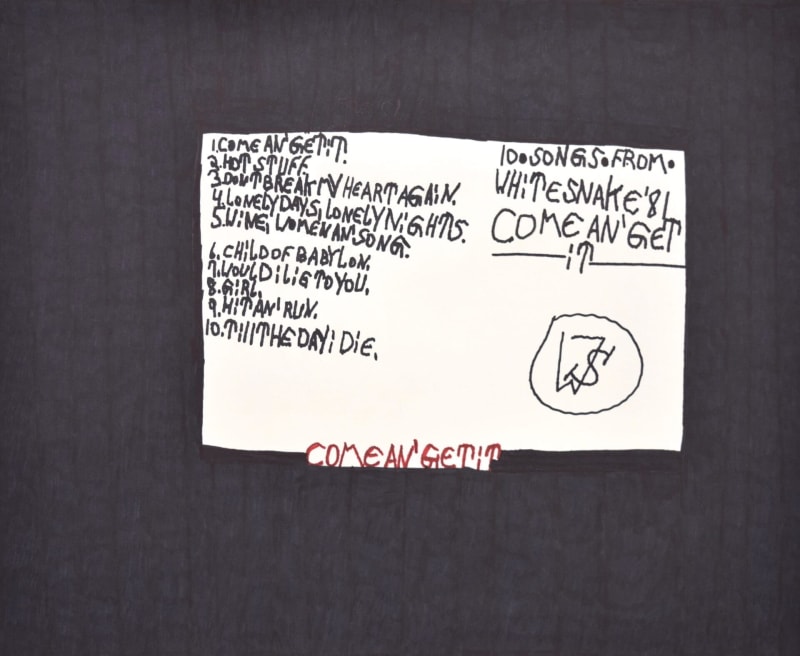 1.COME AN' GET iT.
2.HOT STUFF.
3.DON'T BREAK MY HEART AGAiN.
4.LONELY DAYS, LONELY NiGHTS.
5.WiNE, WOMEN AN' SONG.
6.CHiLD OF BABYLON.
7.WOULD i LiE TO YOU.
8.GiRL.
9.HiT AN' RUN.
10.TiLL THE DAY i DiE.
10.SONGS.FROM.
WHiTESNAKE'81
COME AN' GET
iT
WS
COME AN' GET iT